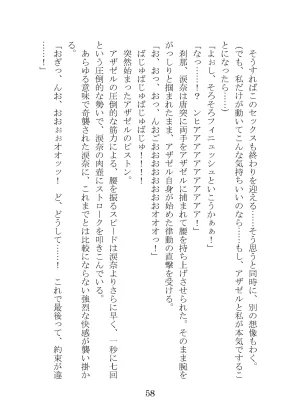 そうすればこのセックスも終わりを迎える……そう思うと同時に、別の想像もわく。
「でも、私だけが動いてこんな気持ちいいのなら……もし、アザゼルと私が本気でするこ
とになったら……」
「よぉし、そろそろフィニュッシュといこうかぁ！」
「なっ……！？　ンヒアアアアアアアアアア！」
刹那、涙奈は唐突に両手をアザゼルに捕まれて腰を持ち上げさせられた。そのまま腕を
がっしりと掴まれたまま、アザゼル自身が始めた律動の直撃を受ける。
「お、おっ、おっ、んおごおおおおおおおおおおオオオっ！
ぱじゅぱじゅぱじゅぱじゅ！！！！
突然始まったアザゼルのピストン。
アザゼルの圧倒的な筋力による、腰を振るスピードは涙奈よりさらに早く、一秒に七回
という圧倒的な勢いで、涙奈の肉壺にストロークを叩きこんでいる。
あらゆる意味で奇襲された涙奈に、これまでとは比較にならない強烈な快感が襲い掛か
る。
「おぎっ、んお、おおぉぉオオッツ！　ど、どうして……！　これで最後って、約束が違
58